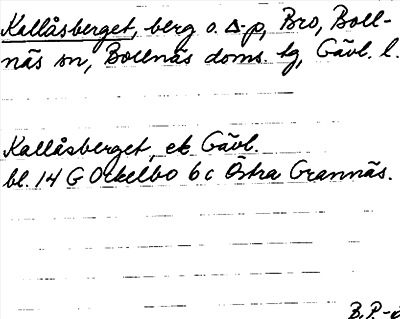 Kallåsberget, berg o. Δ-p, Bro, Boll-
näs sn, Bollnäs doms. tg, Gävl. l.
Kallåsberget, ek Gävl.
bl. 14 G Ockelbo 6 c Östra Grannäs.